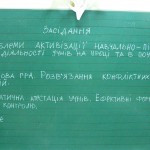 ЗАСІДАННЯ
БЛЕМИ АКТИВІЗАЦІЇ НАВЧАЛЬНО-ПІ
ДІЯЛЬНОСТІ УЧНІВ НА УРОЦІ ТА В ПОЗ
ОВА ГРА. РОЗВ'ЯЗАННЯ КОНФЛІКТНИХ
ИЙ.
АТИЧНИХ АТЕСТАЦІЯ УЧНІВ. ЕФЕКТИВНІ ФОР
КОНТРОЛЮ.